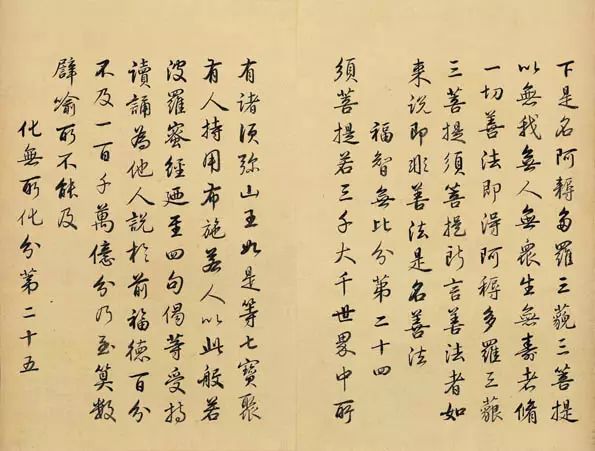 下是名阿耨多羅三藐三菩提
以無我無人無衆生無壽者脩
一切善法即得阿耨多羅三藐
三菩提須菩提所言善法者如
来說即非善法是名善法
福智無比分第二十四
須菩提若三千大千世界中所
有諸須弥山王如是等七寶聚
有人持用布施若人以此般若
波羅蜜經廼至四句偈等受持
讀誦為他人說於前福德百分
不及一百千萬億分乃至算數
譬喻所不能及
化無所化分第二十五